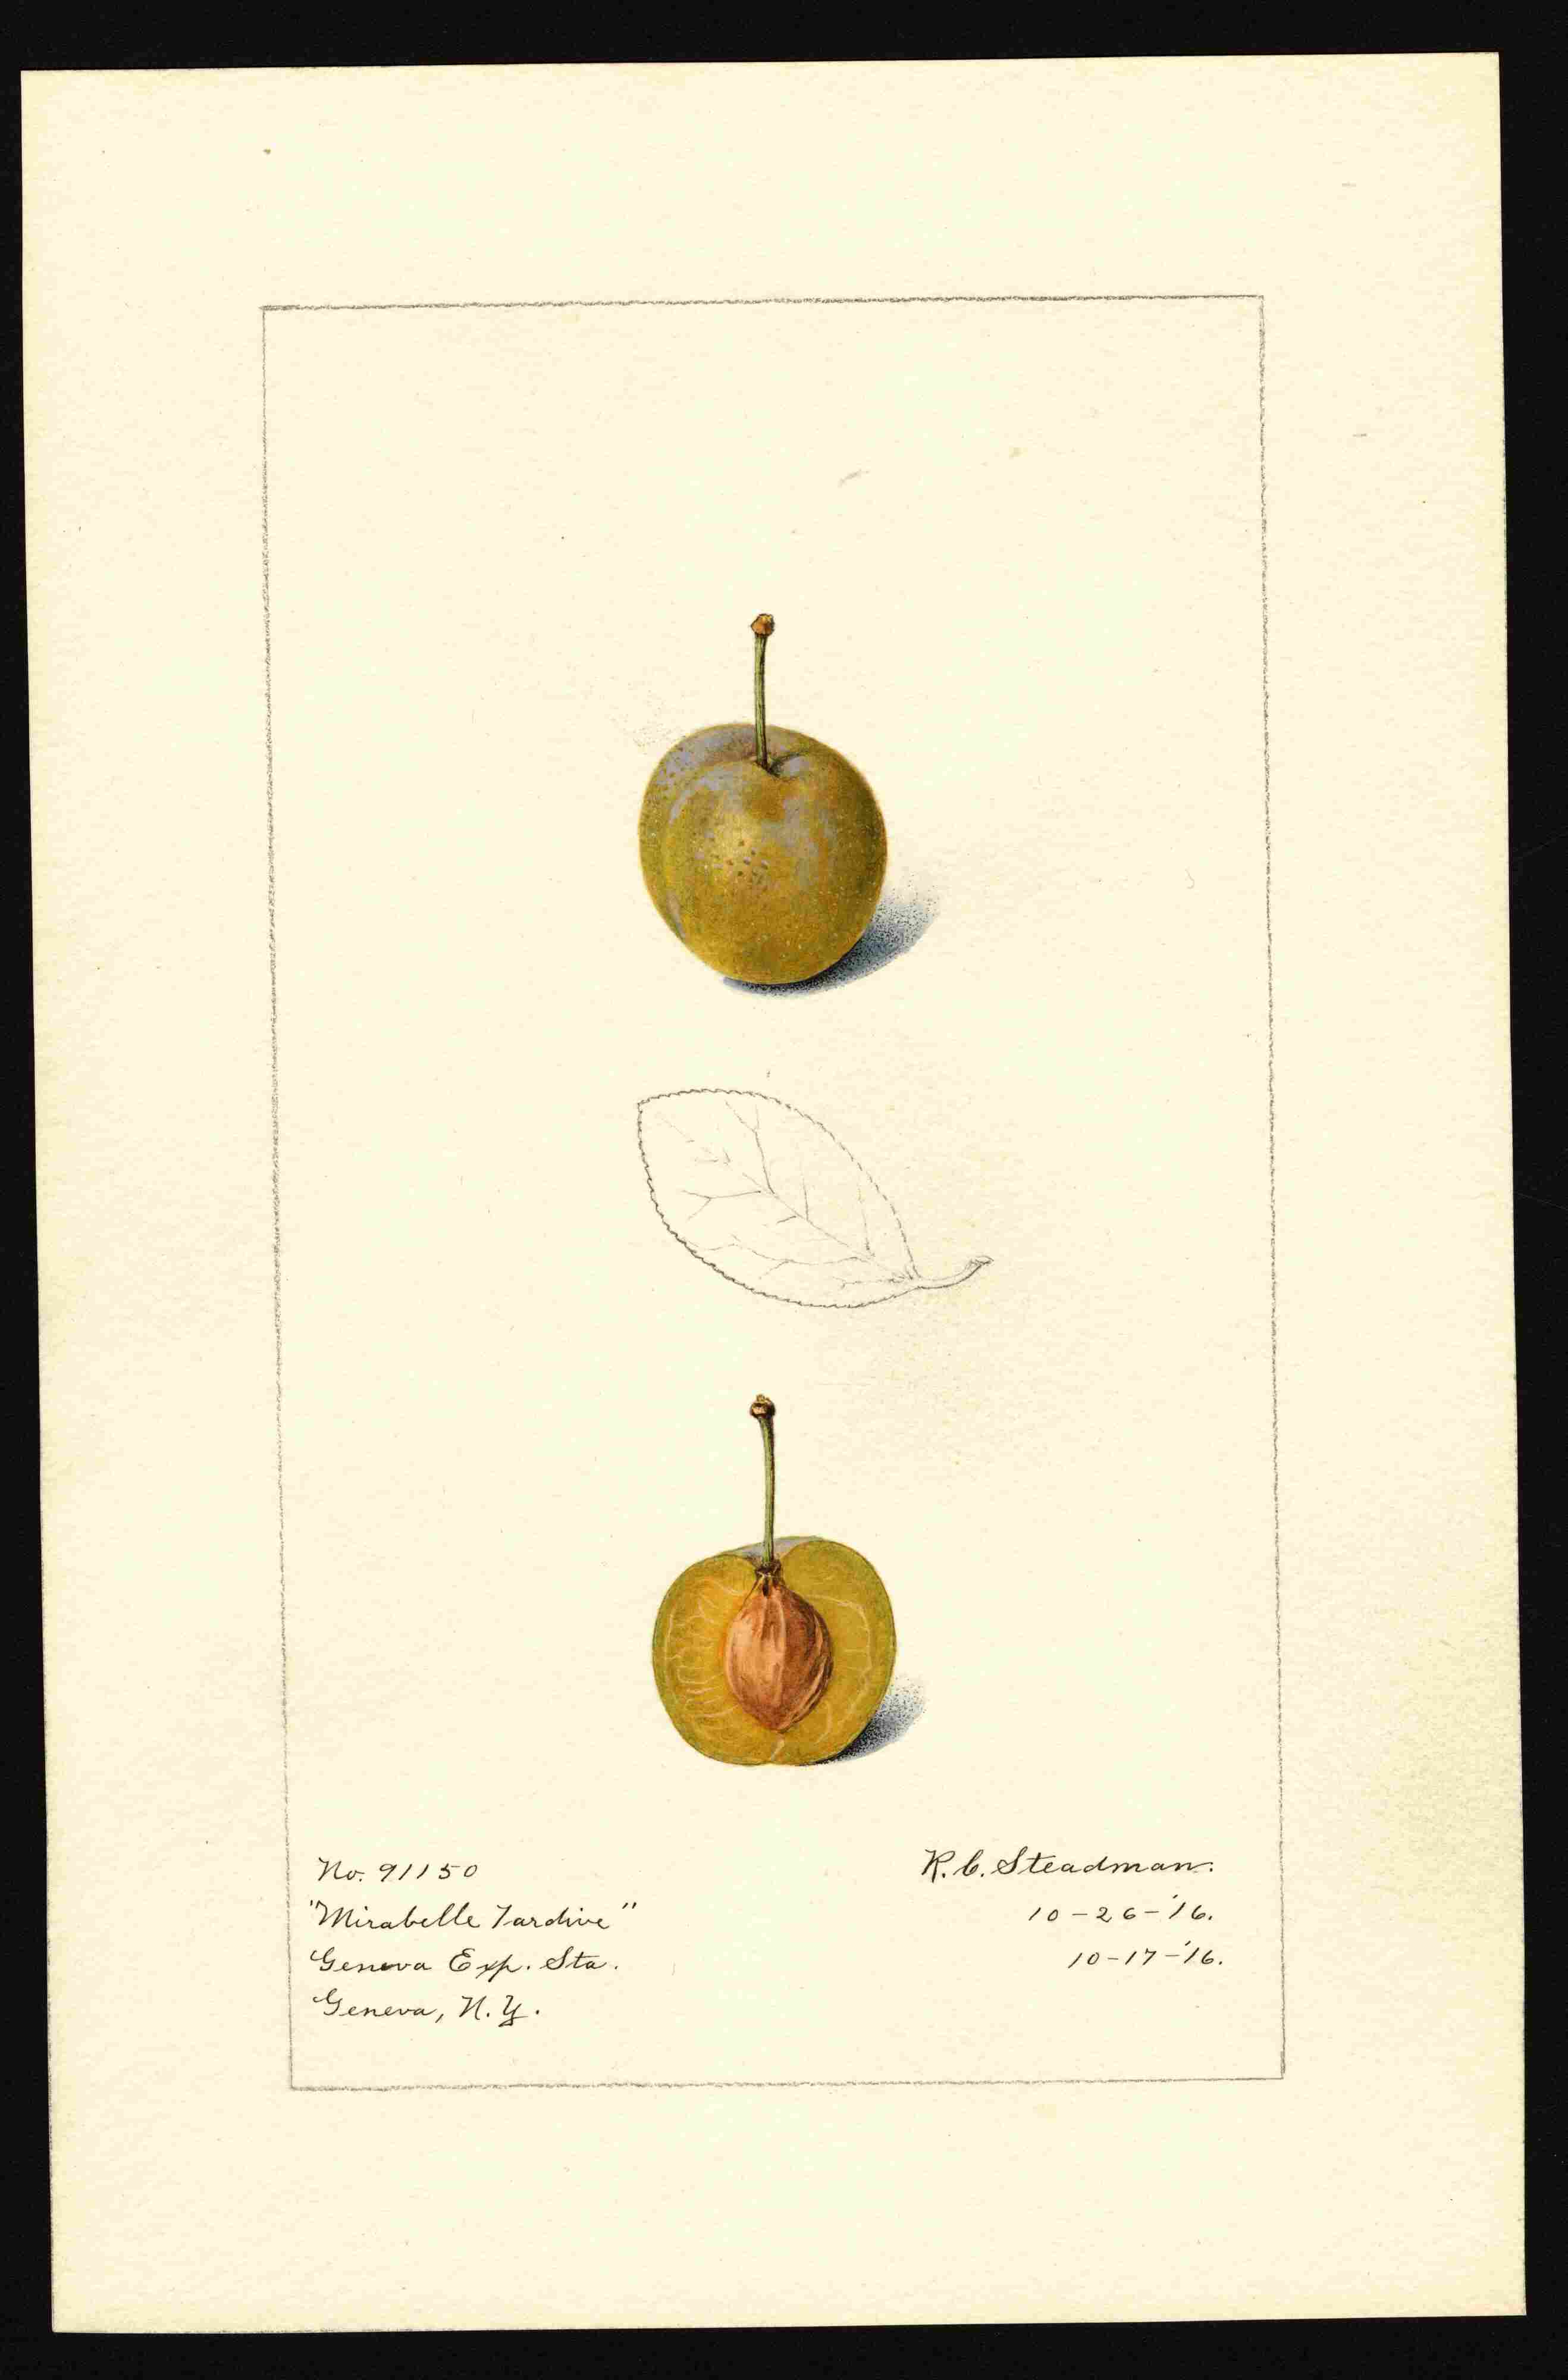 No. 91150
"Mirabelle Tardive"
Geneva Exp. Sta.
Geneva, N.Y.
R. C. Steadman.
10-26-'16.
10-17-'16.